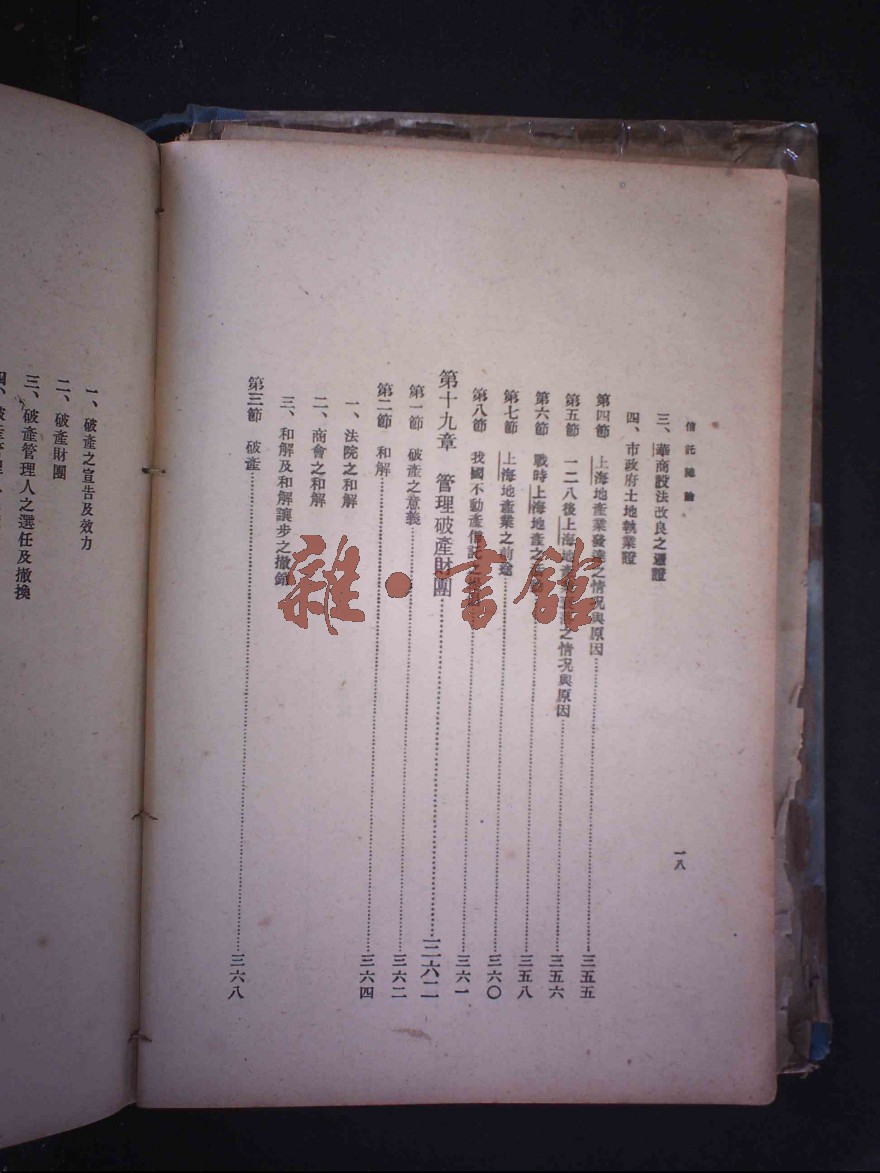 信託總論
一八
三、華商設法改良之憑證
四、市政府土地執業證
第四節 上海地產業發達之情況與原因……三五五
第五節 一二八後上海地產業之情况與原因……三五六
第六節 戰時上海地產之……三五八
第七節 上海地產業之前途……三六〇
第八節 我國不動產信託之……三六一
第十九章 管理破產財團……三六二
第一節 破產之意義……三六二
第二節 和解……三六四
一、法院之和解
二、商會之和解
三、和解及和解讓步之撤銷
第三節 破產……三六八
一、破產之宣告及效力
二、破產財團
三、破產管理人之選任及撤換
四、破產管理人
雜·書館